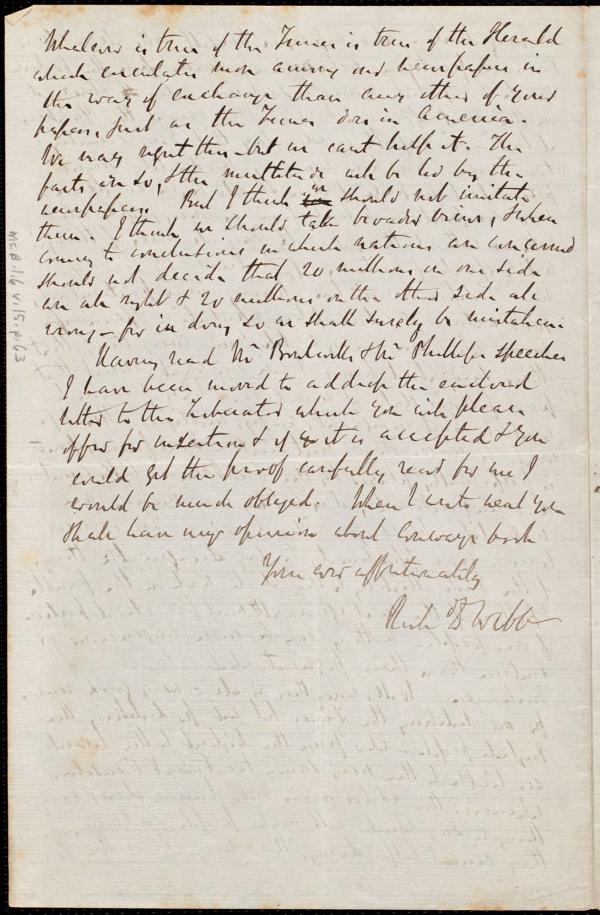 Whatever is true of the Times is true of the Herald
which circulates more among our newspapers in
the way of exchange than any other of your
papers, just as the Times does in America.
We may regret this - but we cant help it. The
facts are so, & the multitude will be led by the
newspapers. But I think we should not imitate
them. I think we should take broader views, & when
coming to conclusions in which nations are concerned
should not decide that 20 millions on one side
are all right & 20 millions on the other side all
wrong - for in doing so we shall surely be mistaken.
Having read Mr & Mr Phillips's speeches
I have been moved to address the enclosed
letter to the Liberator which you will please
offer for insertion & if it is accepted & you
could get the proof carefully read for me I
would be much obliged. When I write next you
shall have my opinion about Conway's book
Yours ever affectionately
Richd D Webb
Ms.B.1.6 v.15, p.63